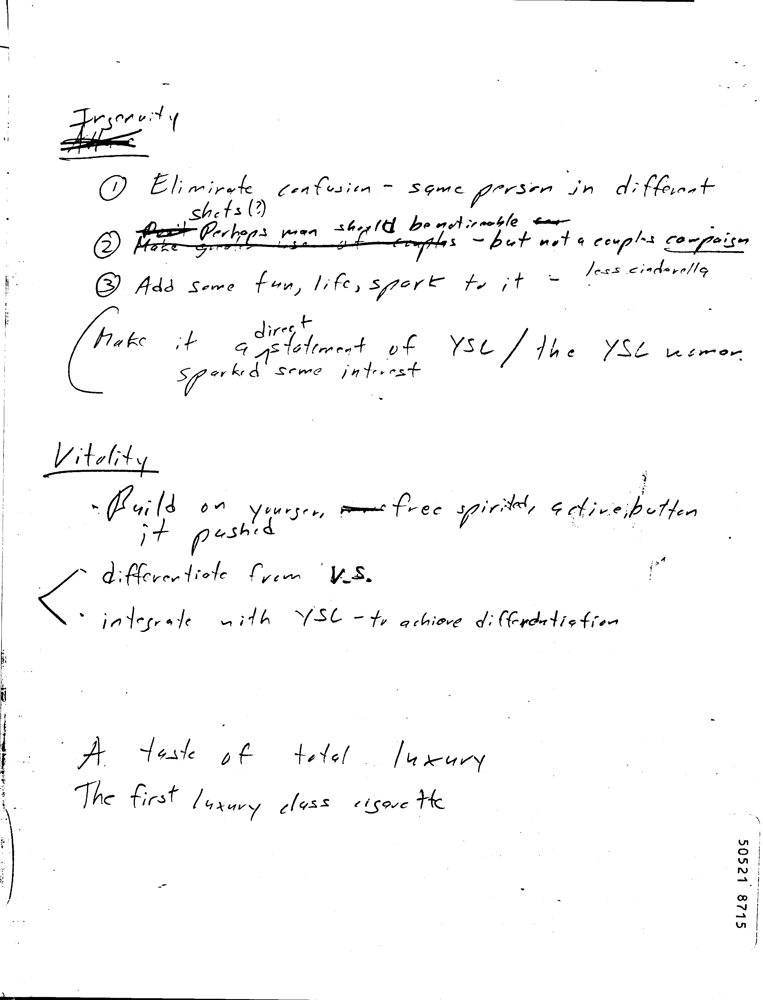 Ingenuity
① Eliminate confusion - same person in different
shots (?)
Perhaps man should be noticeable
② - but not a couples campaign
③ Add some fun, life, spark to it - less cinderella
Make it a direct statement of YSL / the YSL woman.
sparked some interest
Vitality
- Build on younger, free spirited, active; button
it pushed
- differentiate from V.S.
· integrate with YSL - to achieve differentiation
A taste of total luxury
The first luxury class cigarette
50521 8715